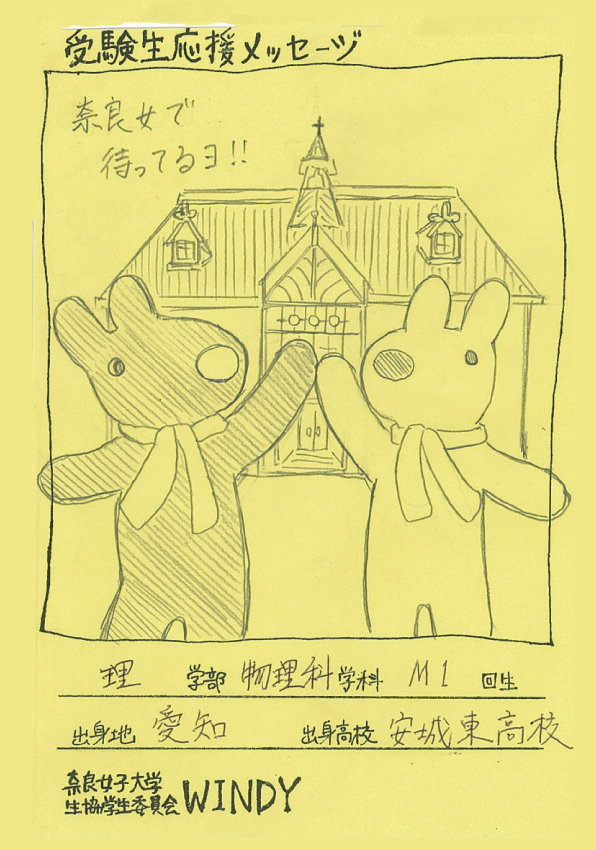 受験生応援メッセージ
奈良女で
待ってるヨ!!
理 学部 物理科学科 M1 回生
出身地 愛知 出身高校 安城東高校
奈良女子大学
生協学生委員会 WINDY